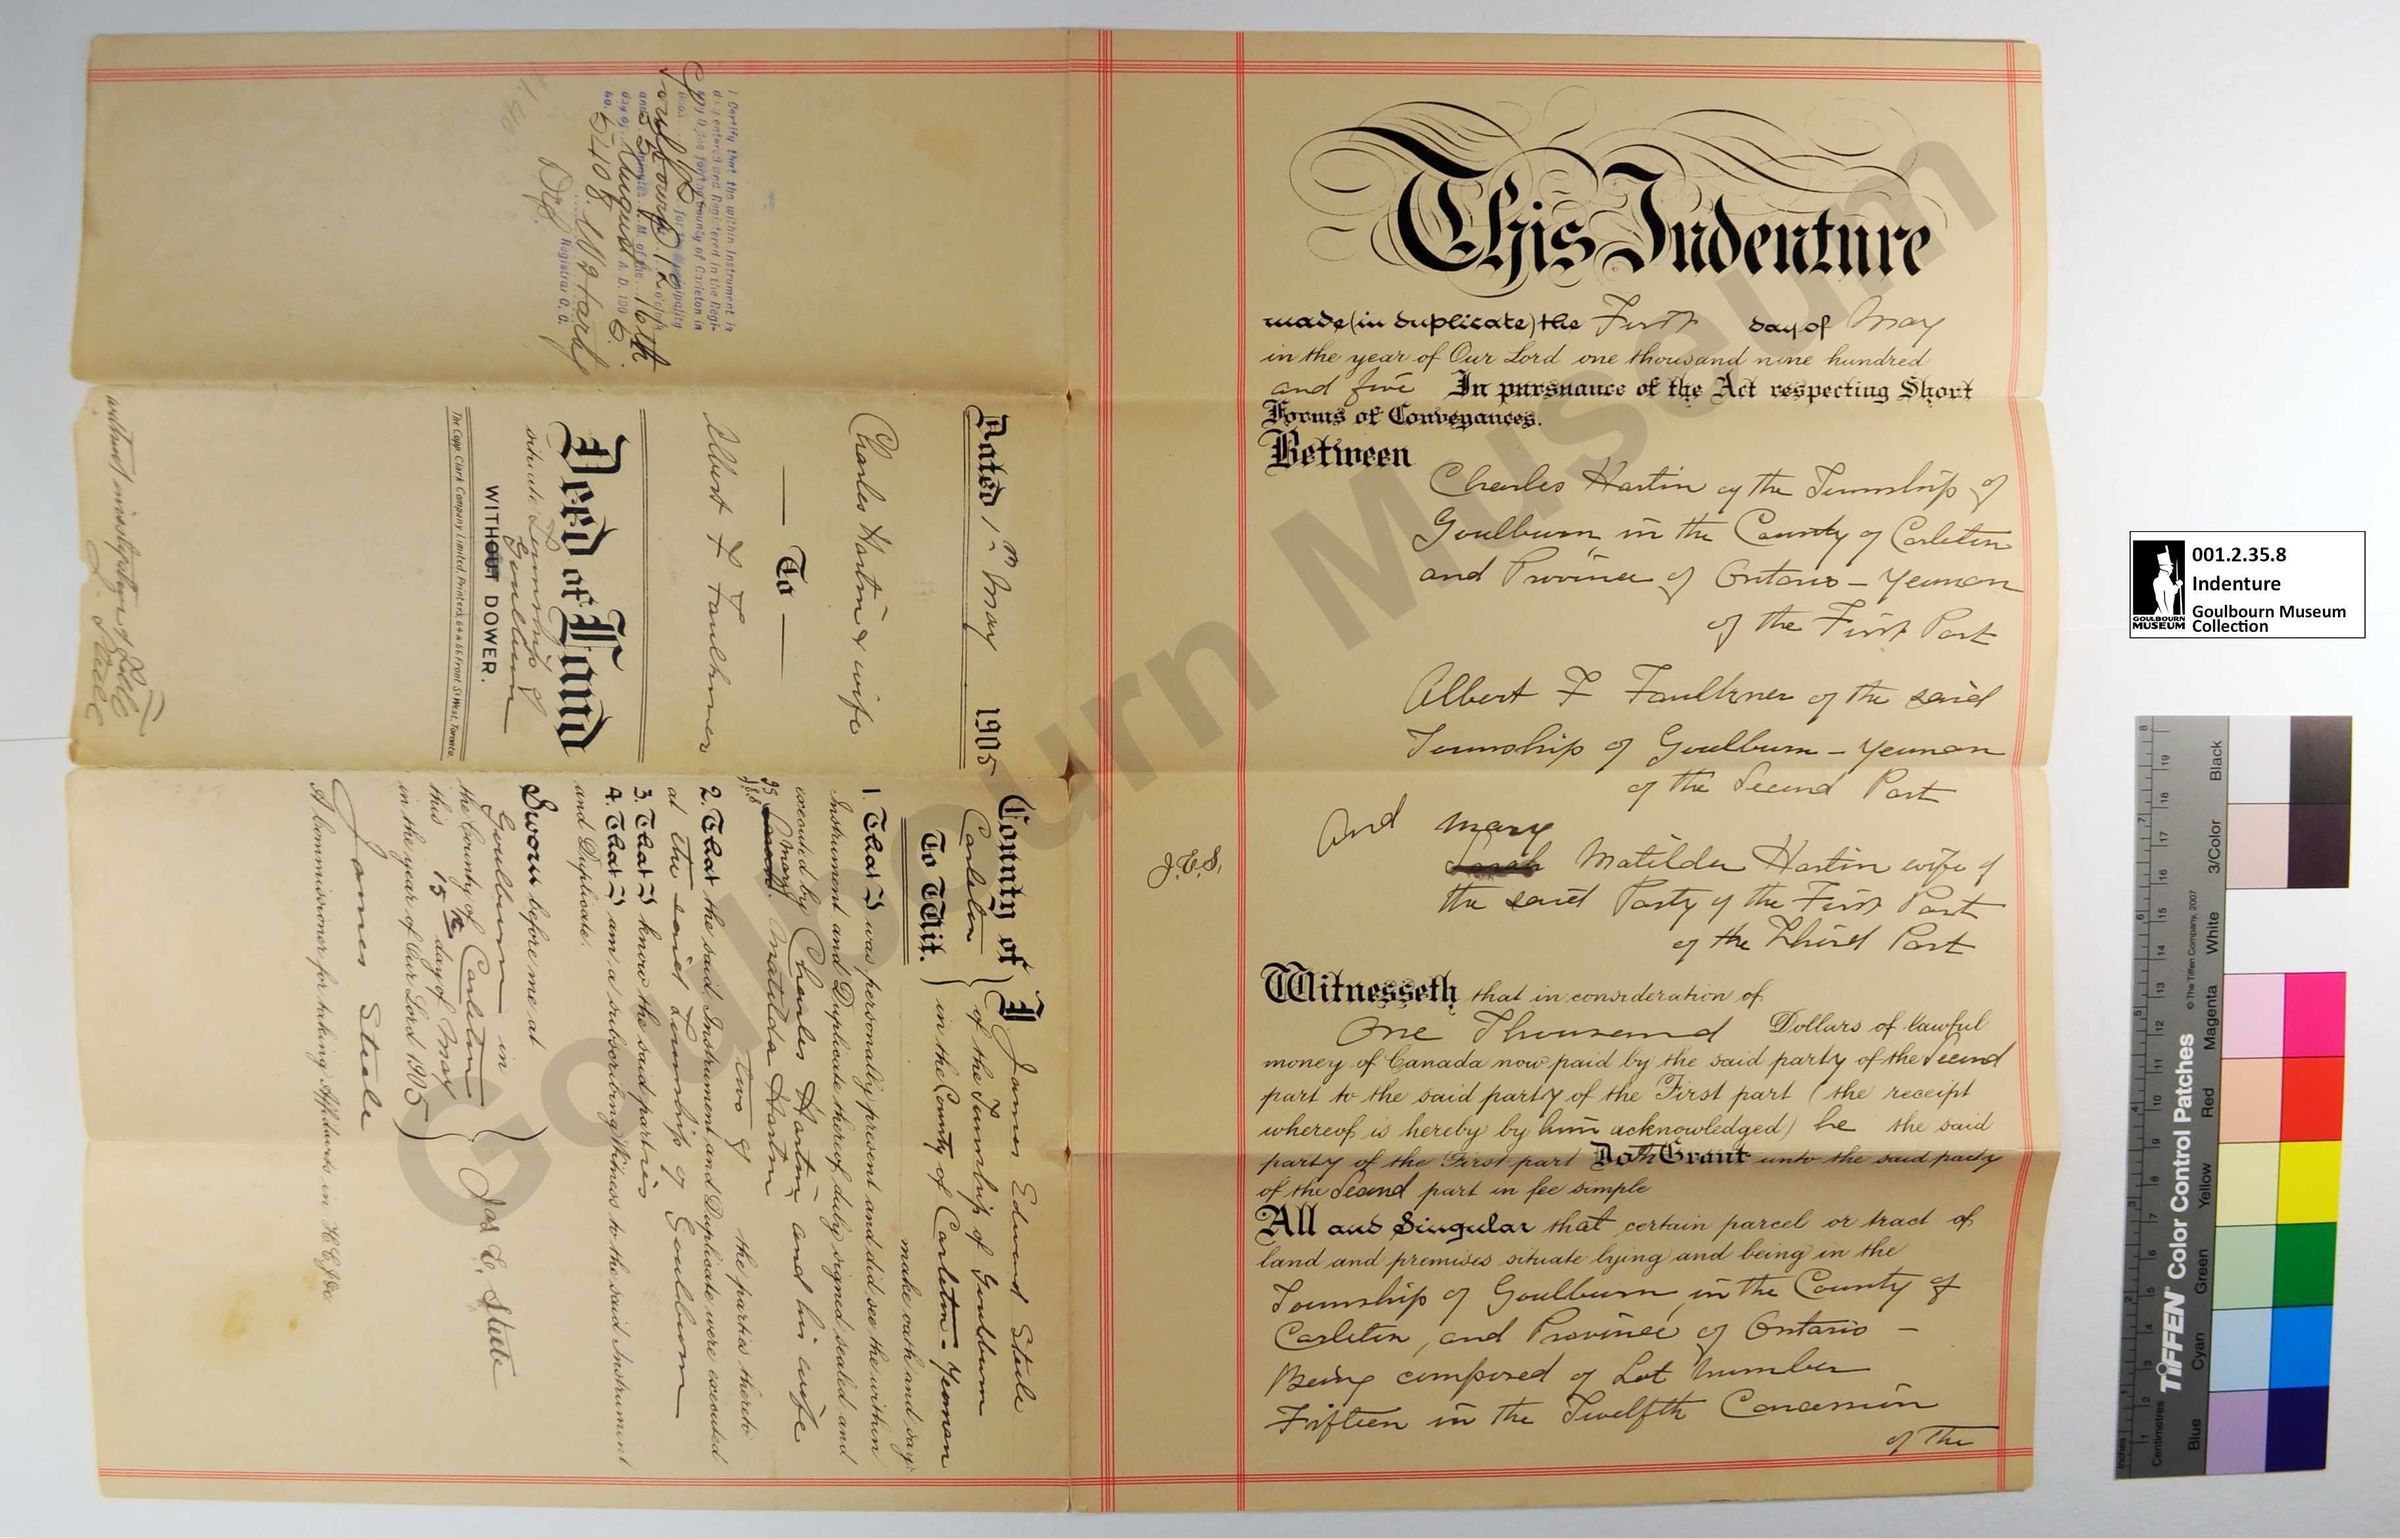 This Indenture
made (in duplicate) the First day of May
in the year of Our Lord one thousand nine hundred
and five In pursuance of the Act respecting Short
Forms of Conveyances.
Between
Charles Hartin of the Township of
Goulburn in the County of Carleton
and Province of Ontario – Yeoman
of the First Part
Albert F Faulkner of the said
Township of Goulburn – Yeoman
of the Second Part
And Mary
Sarah Matilda Hartin wife of
J.E.S.
the said Party of the First Part
of the Third Part
Witnesseth that in consideration of
One Thousand Dollars of lawful
money of Canada now paid by the said party of the Second
part to the said party of the First part (the receipt
whereof is hereby by him acknowledged) he the said
party of the First part Doth Grant unto the said party
of the Second part in fee simple
All and Singular that certain parcel or tract of
land and premises situate lying and being in the
Township of Goulburn in the County of
Carleton, and Province of Ontario –
Being composed of Lot Number
Fifteen in the Twelfth Concession
of the
I Certify that the within Instrument is
duly entered and Registered in the Regi-
stry Office for the County of Carleton in
Book for the Municipality
Goulbourn 12 o'clock
and minutes M. of the 16th
day of August A. D. 190
No. 5408.
Registrar C. C.
Dated 1st May 1905
Charles Hartin & wife
To
Albert F Faulkner
Deed of Land
situate Township of
Goulburn
WITHOUT DOWER.
The Copp Clark Company Limited, Printers, 64 & 66 Front St West, Toronto.
County of
Carleton
To Wit.
I James Edward Steele
of the Township of Goulburn
in the County of Carleton – Yeoman
make oath and say:
1. That I was personally present and did see the within
Instrument and Duplicate thereof duly signed sealed and
executed by Charles Hartin and his wife
Sarah Mary Matilda Hartin
two of the parties thereto
2. That the said Instrument and Duplicate were executed
at the said Township of Goulburn
3. That I know the said parties
4. That I am a subscribing Witness to the said Instrument
and Duplicate.
Sworn before me at
Goulburn in
the County of Carleton
this 15th day of May
in the year of Our Lord 1905
Jas E. Steele
James Steele
A Commissioner for taking Affidavits in H.C.J. &c
Goulbourn Museum
001.2.35.8
Indenture
Goulbourn Museum
Collection
GOULBOURN
MUSEUM
TIFFEN Color Control Patches
© The Tiffen Company, 2007
Inches
Centimetres
Blue
Cyan
Green
Yellow
Red
Magenta
White
3/Color
Black